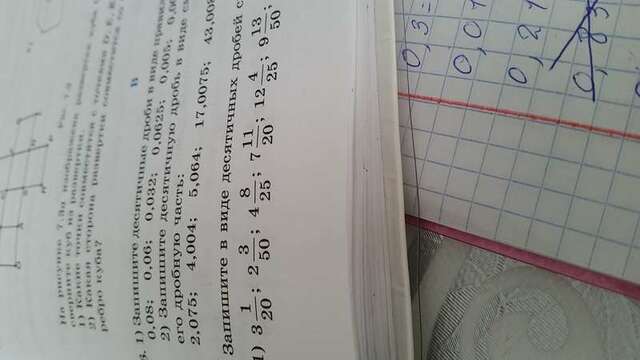 Рис. 7.9
На рисунке 7.9а изображена развертка куба
сверните куб из развертки.
1) Какие точки совместятся с точками D, E,
2) Какая сторона развертки совместится со
ребро куба?
В
1) Запишите десятичные дроби в виде
0,08; 0,06; 0,032; 0,0625; 0,005;
2) Запишите десятичную дробь, в виде
его дробную часть:
2,075; 4,004; 5,064; 17,0075; 43,008
Запишите в виде десятичных дробей с
1) 3 1/20; 2 3/50; 4 8/25; 7 11/20; 12 4/25; 9 13/50;
0,3=
0,01
0,21